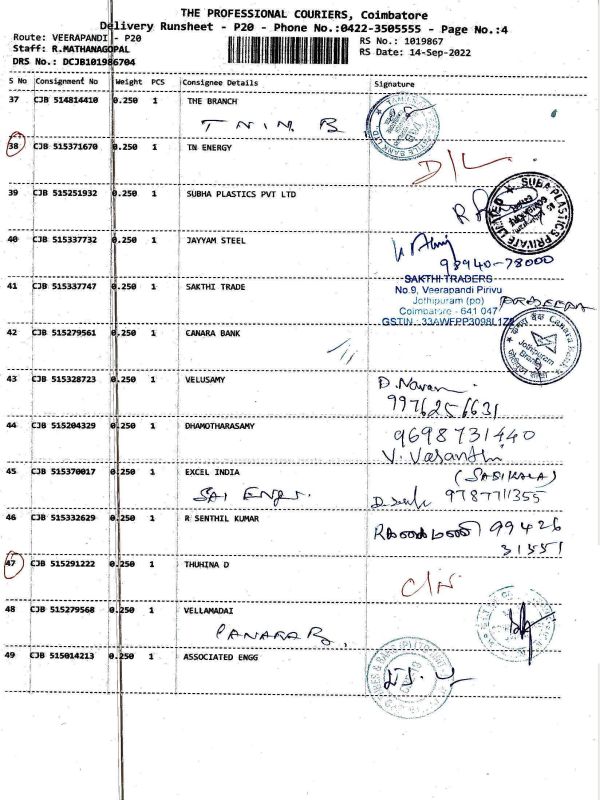 THE PROFESSIONAL COURIERS, Coimbatore
Delivery Runsheet - P20 - Phone No.:0422-3505555 - Page No.:4
Route: VEERAPANDI - P20 RS No.: 1019867
Staff: R.MATHANAGOPAL RS Date: 14-Sep-2022
DRS No.: DCJB101986704
S No Consignment No Weight PCS Consignee Details Signature
37 CJB 514814410 0.250 1 THE BRANCH
T N I N B
38 CJB 515371670 0.250 1 TN ENERGY
D/L
39 CJB 515251932 0.250 1 SUBHA PLASTICS PVT LTD
SUBA PLASTICS PRIVATE LIMITED
40 CJB 515337732 0.250 1 JAYYAM STEEL
98940-78000
41 CJB 515337747 0.250 1 SAKTHI TRADE
SAKTHI TRADERS
No.9, Veerapandi Pirivu
Jothipuram (po)
Coimbatore - 641 047
GSTIN : 33AWFPP3098L1Z
PRADEEPA
42 CJB 515279561 0.250 1 CANARA BANK
Canara Bank
Jothipuram
Branch
43 CJB 515328723 0.250 1 VELUSAMY
D. Navan
9976256631
44 CJB 515204329 0.250 1 DHAMOTHARASAMY
9698731440
V. Vasanthi
45 CJB 515370017 0.250 1 EXCEL INDIA
(SASIKALA)
SAI Engr. 9787711355
46 CJB 515332629 0.250 1 R SENTHIL KUMAR
99426
31551
47 CJB 515291222 0.250 1 THUHINA D
C/N
48 CJB 515279568 0.250 1 VELLAMADAI
CANARA B,
49 CJB 515014213 0.250 1 ASSOCIATED ENGG